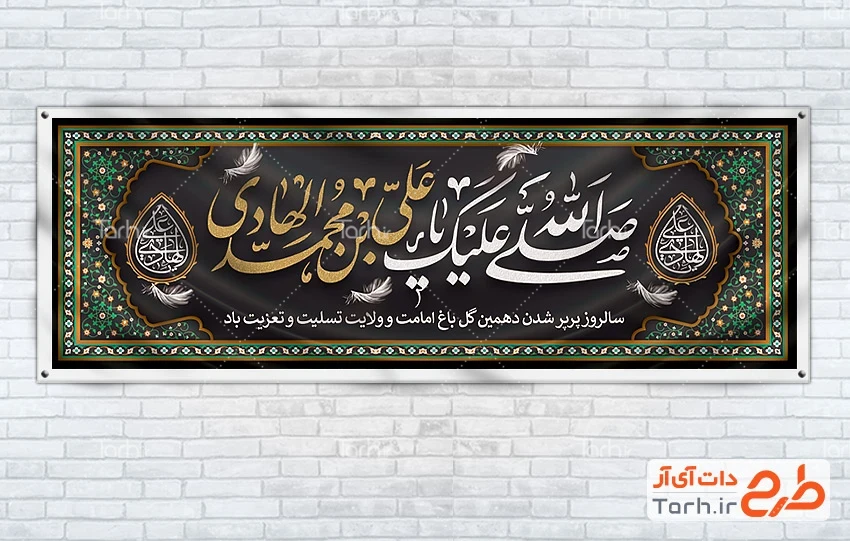 صلی الله علیک یا علی بن محمد الهادی
سالروز پرپر شدن دهمین گل باغ امامت و ولایت تسلیت و تعزیت باد
طرح دات آی آر
Tarh.ir